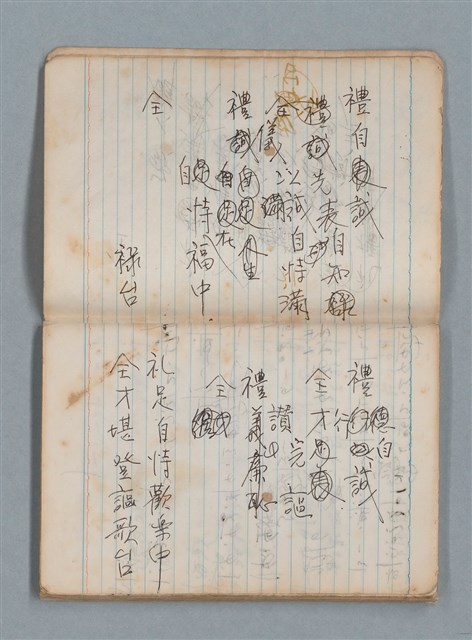 禮自表誠
禮誠先表自知
全儀以誠自恃滿
禮誠自足
自足恃福中
全
祿台
禮 德自
行 誠
全才足表
讚 完 謳
禮義廉恥
全
礼足自恃歡樂中
全才堪登謳歌台